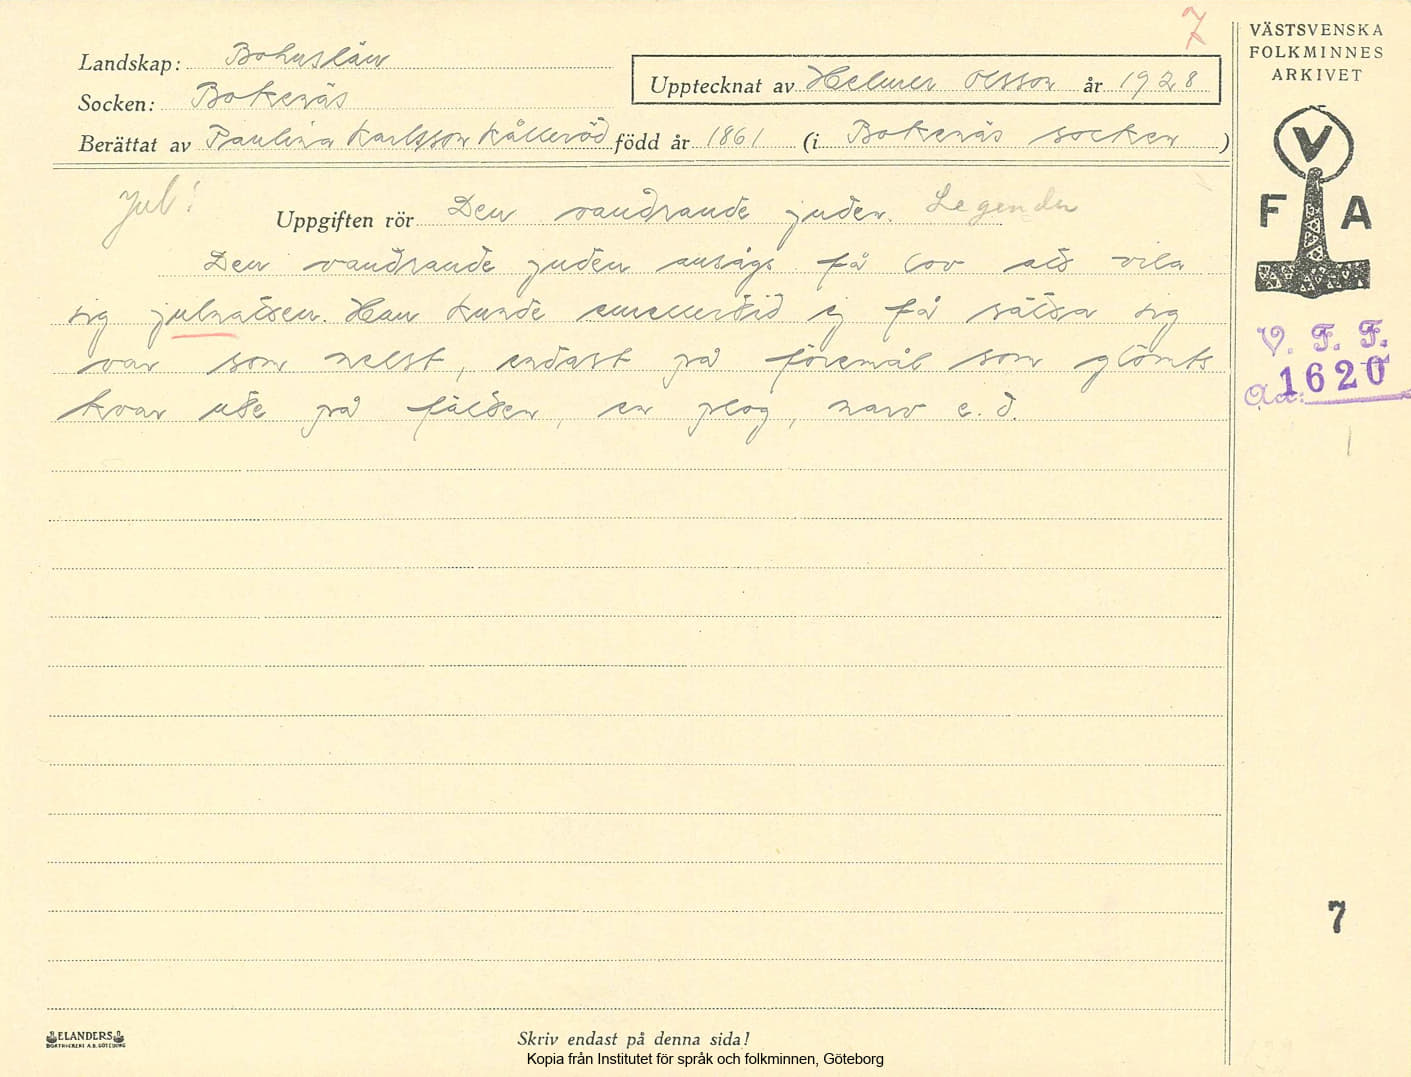 7
VÄSTSVENSKA
FOLKMINNES
ARKIVET
Landskap: Bohuslän
Upptecknat av Helmer Olsson år 1928
Socken: Bokenäs
Berättat av Paulina Karlsson Kålleröd född år 1861 (i Bokenäs socken )
V
F A
Jul!
Uppgiften rör Den vandrande juden. Legender
Den vandrande juden ansågs få lov att vila
sig julnatten. Han kunde emellertid ej få sätta sig
var som helst, endast på föremål som glömts
kvar ute på fälten, en plog, harv e. d.
V. F. F.
Acc: 1620
7
ELANDERS
BOKTRYCKERI A.B. GÖTEBORG
Skriv endast på denna sida!
Kopia från Institutet för språk och folkminnen, Göteborg